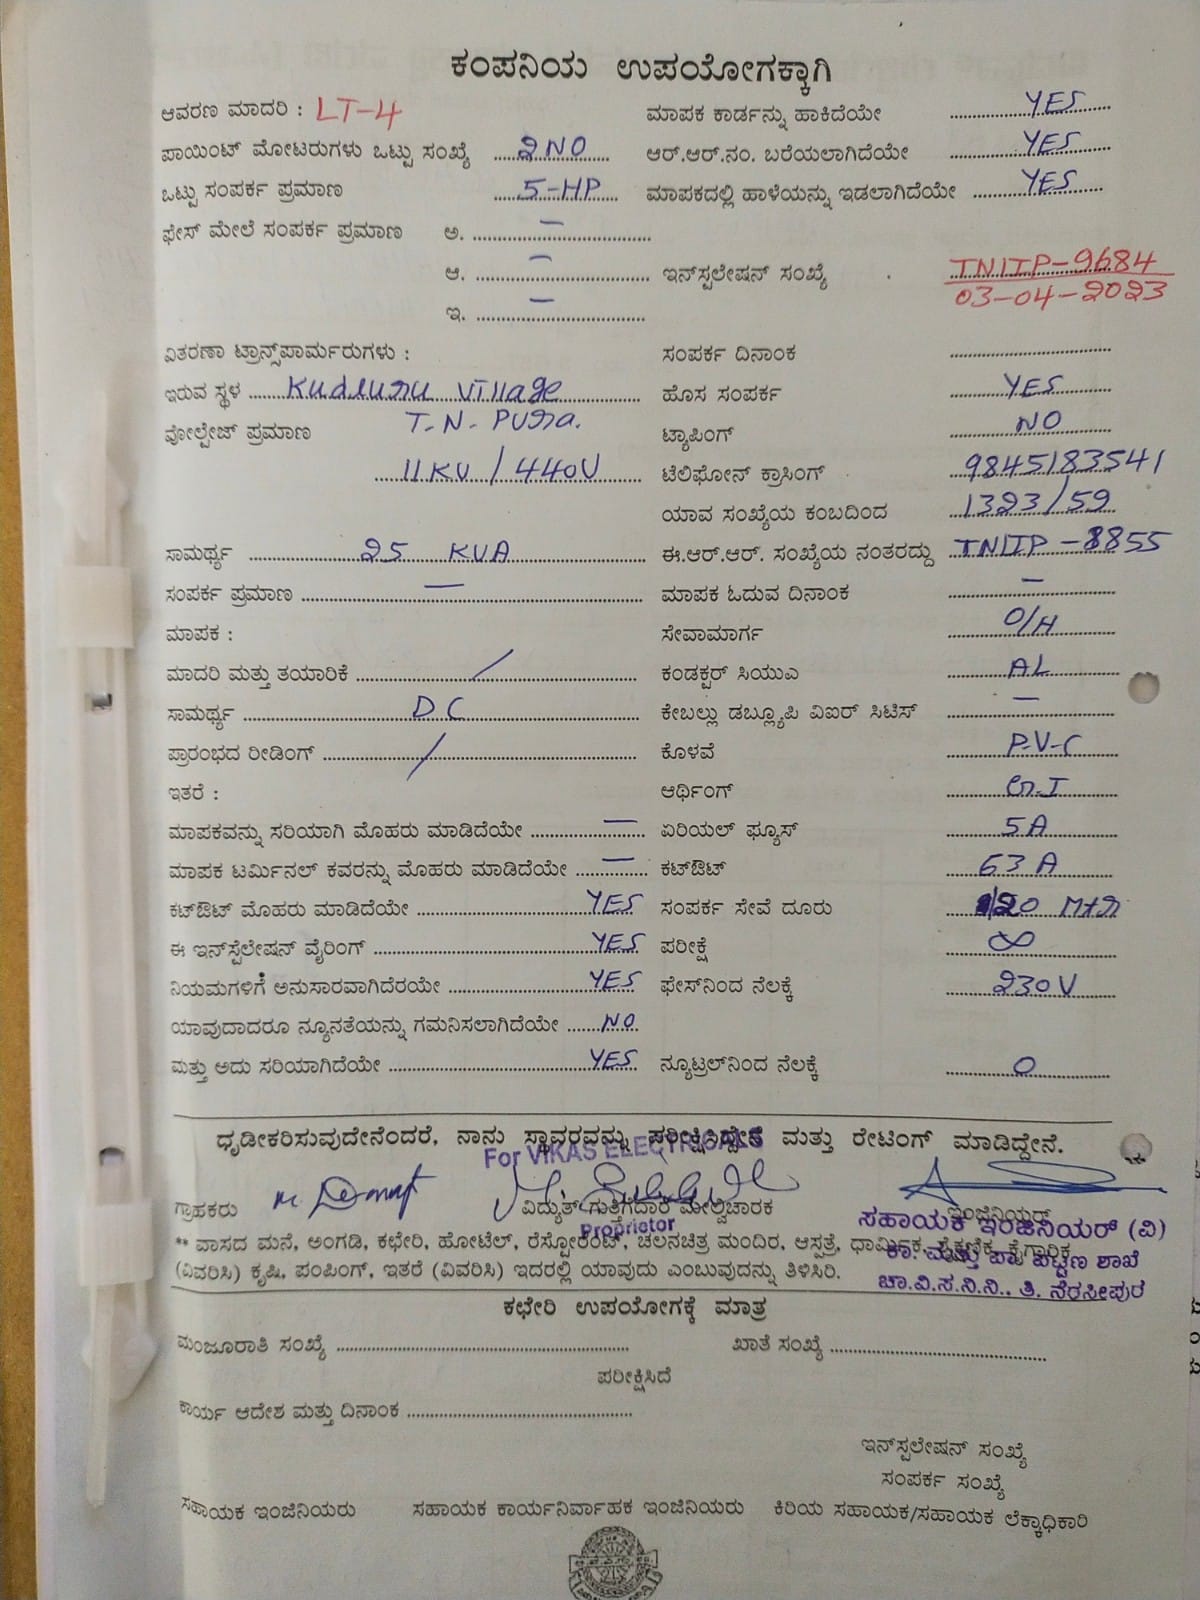 ಕಂಪನಿಯ ಉಪಯೋಗಕ್ಕಾಗಿ
ಆವರಣ ಮಾದರಿ : LT-4 ಮಾಪಕ ಕಾರ್ಡನ್ನು ಹಾಕಿದೆಯೇ YES
ಪಾಯಿಂಟ್ ಮೋಟರುಗಳು ಒಟ್ಟು ಸಂಖ್ಯೆ 2NO ಆರ್.ಆರ್.ನಂ. ಬರೆಯಲಾಗಿದೆಯೇ YES
ಒಟ್ಟು ಸಂಪರ್ಕ ಪ್ರಮಾಣ 5-HP ಮಾಪಕದಲ್ಲಿ ಹಾಳೆಯನ್ನು ಇಡಲಾಗಿದೆಯೇ YES
ಫೇಸ್ ಮೇಲೆ ಸಂಪರ್ಕ ಪ್ರಮಾಣ ಅ. —
ಆ. — ಇನ್‌ಸ್ಪಲೇಷನ್ ಸಂಖ್ಯೆ TNITP-9684
03-04-2023
ಇ. —
ವಿತರಣಾ ಟ್ರಾನ್ಸ್‌ಪಾರ್ಮರುಗಳು : ಸಂಪರ್ಕ ದಿನಾಂಕ
ಇರುವ ಸ್ಥಳ Kudluru Village ಹೊಸ ಸಂಪರ್ಕ YES
T. N. Pura.
ವೋಲ್ಟೇಜ್ ಪ್ರಮಾಣ ಟ್ಯಾಪಿಂಗ್ NO
11KV / 440V ಟೆಲಿಫೋನ್ ಕ್ರಾಸಿಂಗ್ 9845183541
ಯಾವ ಸಂಖ್ಯೆಯ ಕಂಬದಿಂದ 1323/59
ಸಾಮರ್ಥ್ಯ 25 KVA ಈ.ಆರ್.ಆರ್. ಸಂಖ್ಯೆಯ ನಂತರದ್ದು TNITP-8855
ಸಂಪರ್ಕ ಪ್ರಮಾಣ — ಮಾಪಕ ಓದುವ ದಿನಾಂಕ —
ಮಾಪಕ : ಸೇವಾಮಾರ್ಗ O/H
ಮಾದರಿ ಮತ್ತು ತಯಾರಿಕೆ / ಕಂಡಕ್ಟರ್ ಸಿಯುಎ AL
ಸಾಮರ್ಥ್ಯ DC ಕೇಬಲ್ಲು ಡಬ್ಲ್ಯೂಪಿ ವಿಐರ್ ಸಿಟಿಸ್ —
ಪ್ರಾರಂಭದ ರೀಡಿಂಗ್ / ಕೊಳವೆ P-V-C
ಇತರೆ : ಆರ್ಥಿಂಗ್ G.I
ಮಾಪಕವನ್ನು ಸರಿಯಾಗಿ ಮೊಹರು ಮಾಡಿದೆಯೇ — ಏರಿಯಲ್ ಫ್ಯೂಸ್ 5A
ಮಾಪಕ ಟರ್ಮಿನಲ್ ಕವರನ್ನು ಮೊಹರು ಮಾಡಿದೆಯೇ — ಕಟ್‌ಔಟ್ 63 A
ಕಟ್‌ಔಟ್ ಮೊಹರು ಮಾಡಿದೆಯೇ YES ಸಂಪರ್ಕ ಸೇವೆ ದೂರು 120 Mtr
ಈ ಇನ್‌ಸ್ಟೆಲೇಷನ್ ವೈರಿಂಗ್ YES ಪರೀಕ್ಷೆ ∞
ನಿಯಮಗಳಿಗೆ ಅನುಸಾರವಾಗಿದೆರಯೇ YES ಫೇಸ್‌ನಿಂದ ನೆಲಕ್ಕೆ 230V
ಯಾವುದಾದರೂ ನ್ಯೂನತೆಯನ್ನು ಗಮನಿಸಲಾಗಿದೆಯೇ NO
ಮತ್ತು ಅದು ಸರಿಯಾಗಿದೆಯೇ YES ನ್ಯೂಟ್ರಲ್‌ನಿಂದ ನೆಲಕ್ಕೆ 0
ಧೃಡೀಕರಿಸುವುದೇನೆಂದರೆ, ನಾನು ಸ್ಥಾವರವನ್ನು ಪರೀಕ್ಷಿಸಿದ್ದೇನೆ ಮತ್ತು ರೇಟಿಂಗ್ ಮಾಡಿದ್ದೇನೆ.
For VIKAS ELECTRICALS
ಗ್ರಾಹಕರು ವಿದ್ಯುತ್ ಗುತ್ತಿಗೆದಾರ ಮೇಲ್ವಿಚಾರಕ ಇಂಜಿನಿಯರ್
Proprietor
ಸಹಾಯಕ ಇಂಜಿನಿಯರ್ (ವಿ)
** ವಾಸದ ಮನೆ, ಅಂಗಡಿ, ಕಛೇರಿ, ಹೋಟೆಲ್, ರೆಸ್ಟೋರೆಂಟ್, ಚಲನಚಿತ್ರ ಮಂದಿರ, ಆಸ್ಪತ್ರೆ, ಧಾರ್ಮಿಕ, ಶೈಕ್ಷಣಿಕ, ಕೈಗಾರಿಕ
ಕಾ. ಮತ್ತು ಪಾ ಪಟ್ಟಣ ಶಾಖೆ
(ವಿವರಿಸಿ) ಕೃಷಿ, ಪಂಪಿಂಗ್, ಇತರೆ (ವಿವರಿಸಿ) ಇದರಲ್ಲಿ ಯಾವುದು ಎಂಬುವುದನ್ನು ತಿಳಿಸಿರಿ.
ಚಾ.ವಿ.ಸ.ನಿ.ನಿ., ತಿ. ನರಸೀಪುರ
ಕಛೇರಿ ಉಪಯೋಗಕ್ಕೆ ಮಾತ್ರ
ಮಂಜೂರಾತಿ ಸಂಖ್ಯೆ ಖಾತೆ ಸಂಖ್ಯೆ
ಪರೀಕ್ಷಿಸಿದೆ
ಕಾರ್ಯ ಆದೇಶ ಮತ್ತು ದಿನಾಂಕ
ಇನ್‌ಸ್ಪಲೇಷನ್ ಸಂಖ್ಯೆ
ಸಂಪರ್ಕ ಸಂಖ್ಯೆ
ಸಹಾಯಕ ಇಂಜಿನಿಯರು ಸಹಾಯಕ ಕಾರ್ಯನಿರ್ವಾಹಕ ಇಂಜಿನಿಯರು ಕಿರಿಯ ಸಹಾಯಕ/ಸಹಾಯಕ ಲೆಕ್ಕಾಧಿಕಾರಿ